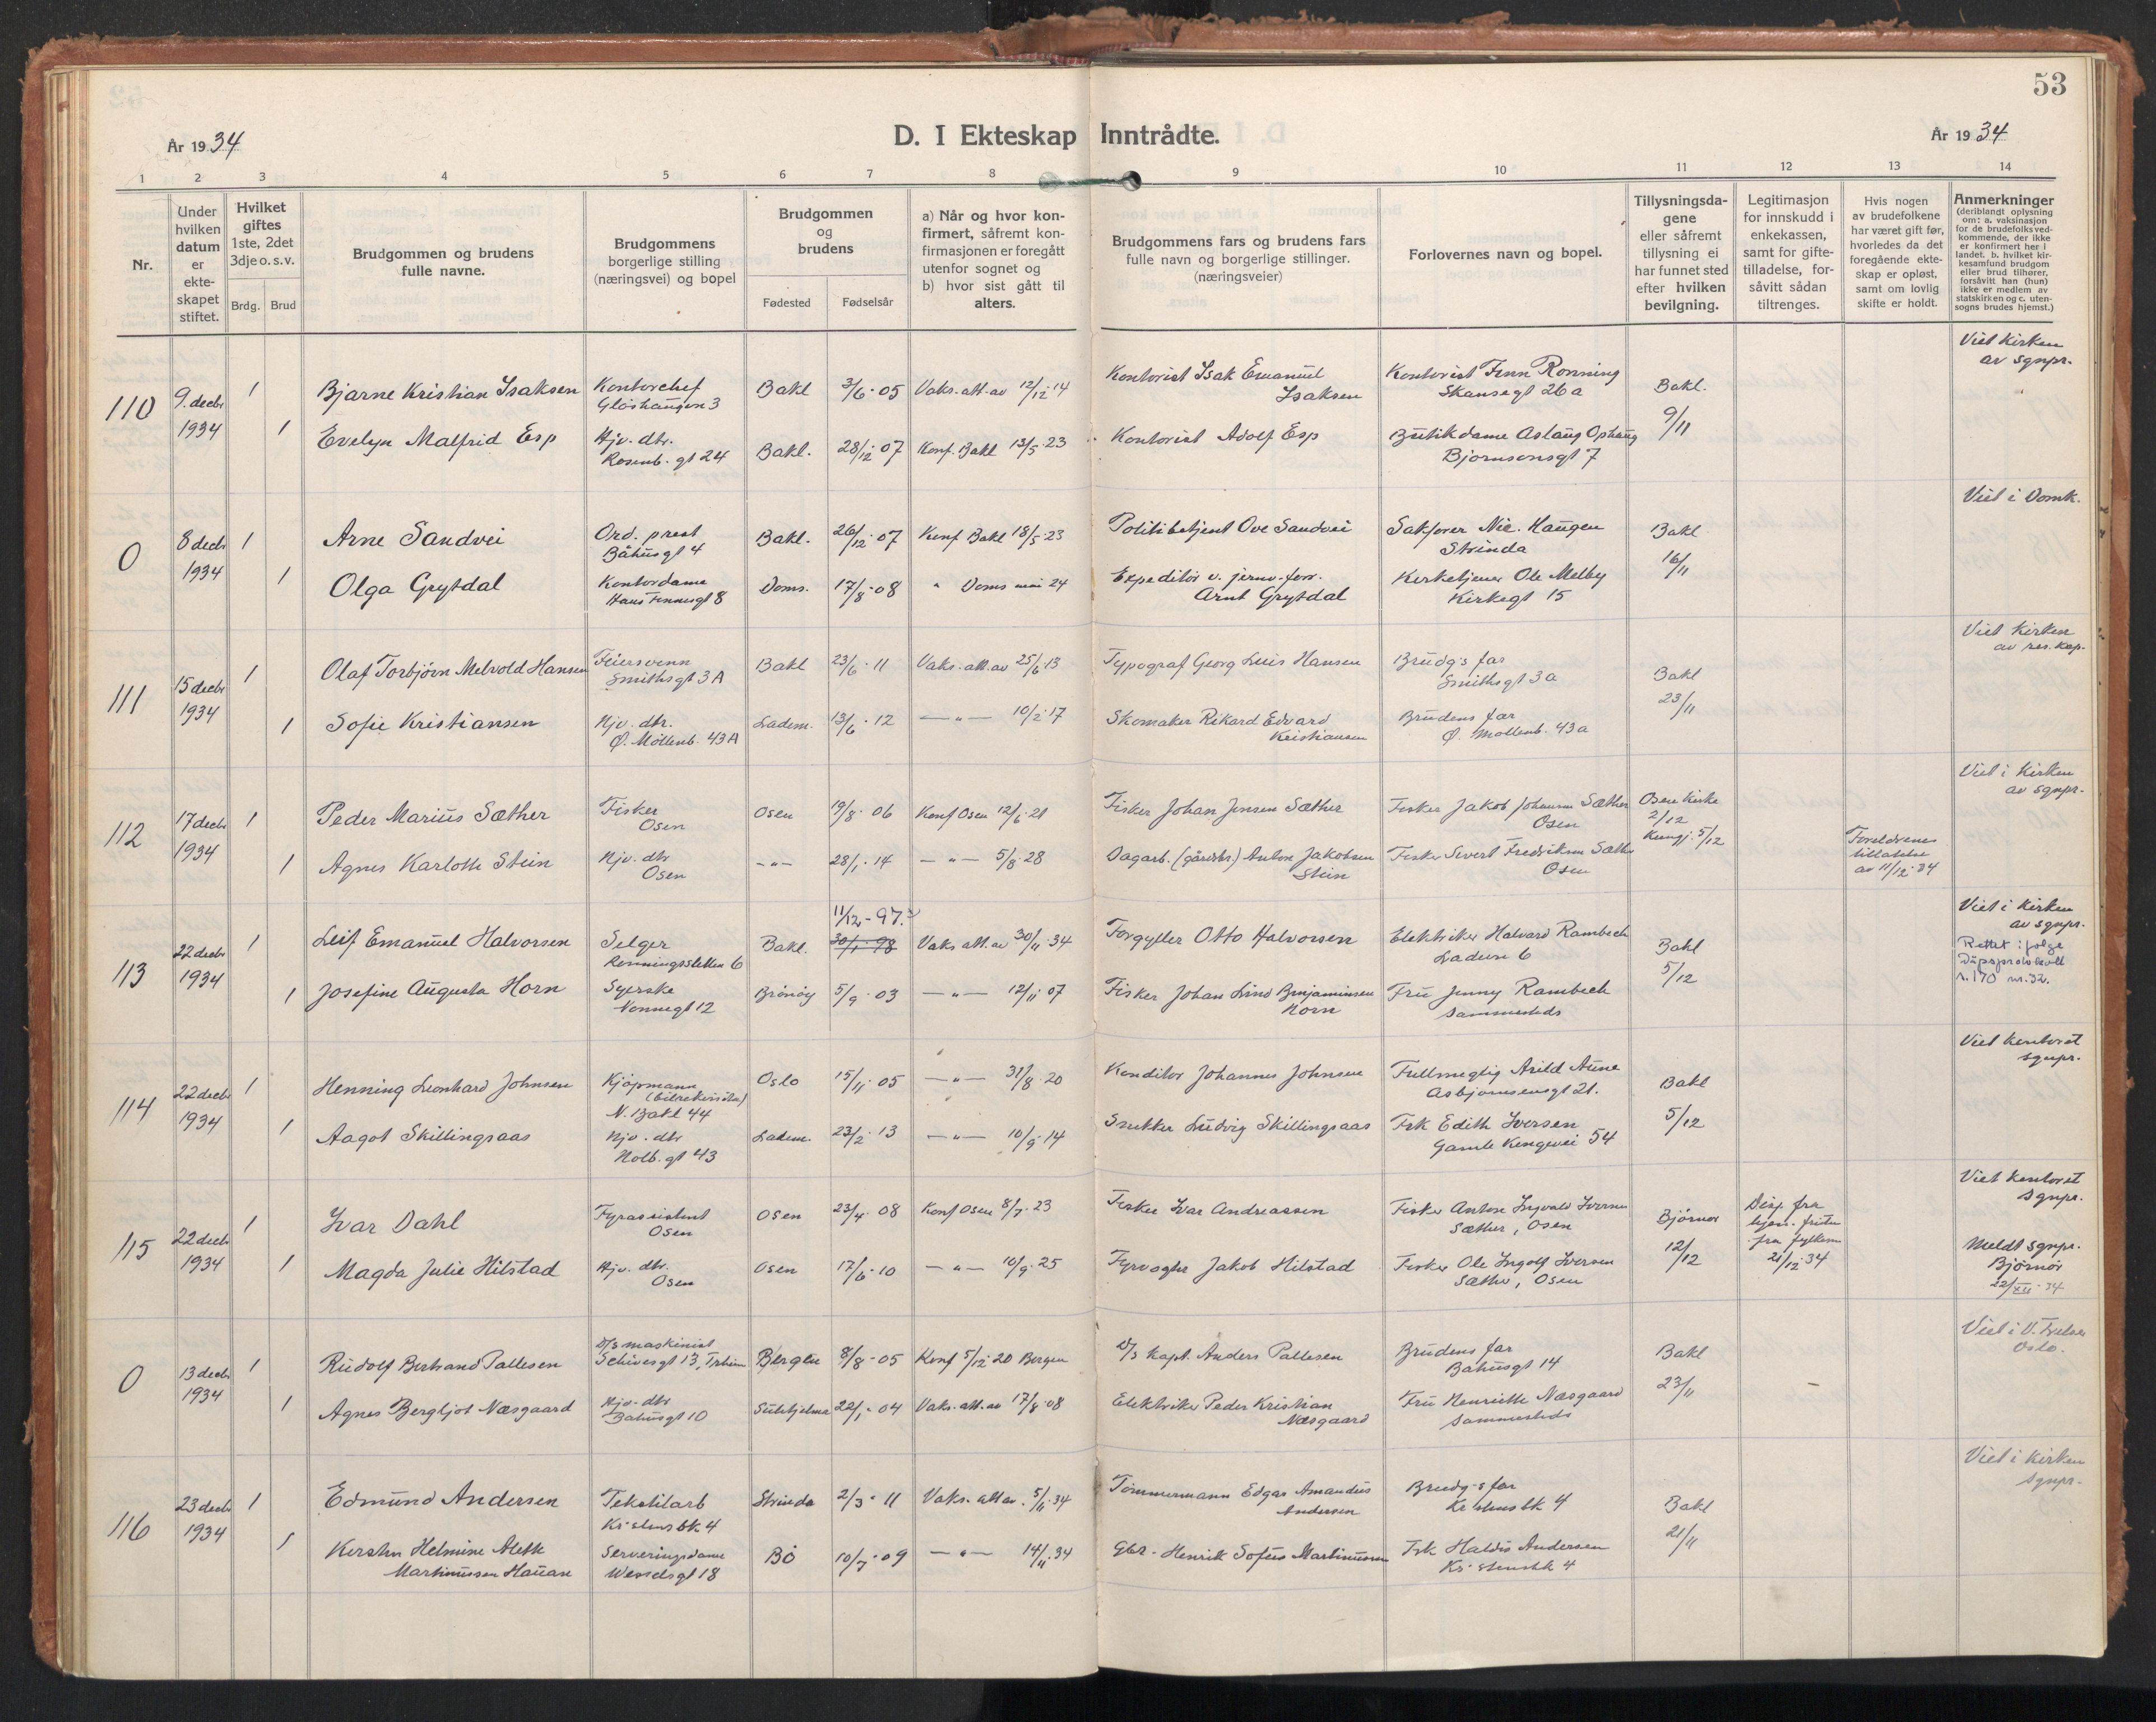 53
År 1934
D. I Ekteskap Inntrådte.
År 1934
1 2 3 4 5 6 7 8 9 10 11 12 13 14
Nr.
Under
hvilken
datum
er
ekte-
skapet
stiftet.
Hvilket
giftes
1ste, 2det
3dje o. s. v.
Brdg. Brud
Brudgommen og brudens
fulle navne.
Brudgommens
borgerlige stilling
(næringsvei) og bopel
Brudgommen
og
brudens
Fødested Fødselsår
a) Når og hvor kon-
firmert, såfremt kon-
firmasjonen er foregått
utenfor sognet og
b) hvor sist gått til
alters.
Brudgommens fars og brudens fars
fulle navn og borgerlige stillinger.
(næringsveier)
Forlovernes navn og bopel.
Tillysningsda-
gene
eller såfremt
tillysning ei
har funnet sted
efter hvilken
bevilgning.
Legitimasjon
for innskudd i
enkekassen,
samt for gifte-
tilladelse, for-
såvitt sådan
tiltrenges.
Hvis nogen
av brudefolkene
har været gift før,
hvorledes da det
foregående ekte-
skap er opløst,
samt om lovlig
skifte er holdt.
Anmerkninger
(deriblandt oplysning
om: a. vaksinasjon
for de brudefolksved-
kommende, der ikke
er konfirmert her i
landet. b. hvilket kir-
kesamfund brudgom
eller brud tilhører,
forsåvitt han (hun)
ikke er medlem av
statskirken og c. uten-
sogns brudes hjemst.)
110
9. decbr
1934
1
Bjarne Kristian Isaksen
Kontorchef
Gløshaugen 3
Bakl
3/6-05
Vaks. att. av 12/12 14
Kontorist Isak Emanuel
Isaksen
Kontorist Finn Rønning
Skansegt 26a
Bakl.
9/11
Viet Kirken
av sgnpr.
1
Evelyn Malfrid Esp
Hjv. dtr.
Rosenb. gt 24
Bakl.
28/12 07
Konf. Bakl 13/5 23
Kontorist Adolf Esp
Butikdame Aslaug Ophaug
Bjørnsonsgt 7
0
8 decbr
1934
1
Arne Sandvei
Ord. prest
Båhusgt 4
Bakl.
26/12 07
Konf Bakl 18/5 23
Politibetjent Ove Sandvei
Sakfører Nic. Haugen
Strinda
Bakl
16/11
Viet i Domk.
1
Olga Grytdal
Kontordame
Hans Finnesgt 8
Doms.
17/8 08
" Doms mai 24
Expeditør v. jernv. forr.
Arnt Grytdal
Kirketjener Ole Melby
Kirkegt 15
111
15 decbr
1934
1
Olaf Torbjörn Melvold Hansen
Feiersvenn
Smithsgt 3 A
Bakl
23/6 11
Vaks. att. av 25/6 13
Typograf Georg Luis Hansen
Brudg's far
Smithsgt 3a
Bakl
23/11
Viet Kirken
av res. kap.
1
Sofie Kristiansen
Hjv. dtr.
Ø. Möllenb. 43 A
Ladem.
13/6 12
— " — 10/2 17
Skomaker Rikard Edvard
Kristiansen
Brudens far
Ø. Mollenb. 43a
112
17 decbr
1934
1
Peder Marius Sæther
Fisker
Osen
Osen
19/8 06
Konf Osen 12/6 21
Fisker Johan Jensen Sæther
Fisker Jakob Johansen Sæther
Osen
Osen Kirke
2/12
Kungj. 5/12
Viet i Kirken
av sgnpr.
1
Agnes Karlotte Stein
Hjv. dtr
Osen
— " —
28/1 14
— " — 5/8 28
Dagarb. (gårdbr.) Anton Jakobsen
Stein
Fisker Sivert Fredriksen Sæther
Osen
Foreldrenes
tillatelse
av 11/12 34
113
22 decbr
1934
1
Leif Emanuel Halvorsen
Selger
Rønningsletten 6
Bakl.
11/12 - 97.
30/1 - 98
Vaks att. av 30/11 34
Forgyller Otto Halvorsen
Elektriker Halvard Rambech
Ladeven 6
Bakl
5/12
Viet i Kirken
av sgnpr.
Rettet ifølge
Dåpsprotokoll
s. 170 nr. 32.
1
Josefine Augusta Horn
Syerske
Nonnegt 12
Brønøy
5/9 03
— " — 12/11 07
Fisker Johan Lind Benjaminsen
Horn
Fru Jenny Rambech
Sammesteds
114
22 decbr
1934
1
Henning Leonhard Johnsen
Kjøpmann
(bilrekvisita)
N. Bakl 44
Oslo
15/11 05
— " — 31/8 20
Konditor Johannes Johnsen
Fullmegtig Arild Aune
Asbjørnsensgt 21.
Bakl
5/12
Viet kontoret
sgnpr.
1
Aagot Skillingsaas
Hjv. dtr
Holb. gt 43
Ladem.
23/2 13
— " — 10/9 14
Snekker Ludvig Skillingsaas
Frk Edith Iversen
Gamle Kongevei 54
115
22 decbr
1934
1
Ivar Dahl
Fyrassistent
Osen
Osen
23/4 08
Konf Osen 8/7 23
Fisker Ivar Andreassen
Fisker Anton Ingvald Iversen
Sæther, Osen
Bjørnør
12/12
Disp fra
lysn. fristen
fra fylkesm
21/12 34
Viet kontoret
sgnpr.
Meldt sgnpr.
Bjørnør
22/XII 34
1
Magda Julie Hilstad
Hjv. dtr.
Osen
Osen
17/6 10
— " — 10/9 25
Fyrvogter Jakob Hilstad
Fisker Ole Ingolf Iversen
Sæther, Osen
0
13 decbr
1934
1
Rudolf Bertrand Pallesen
D/S maskinist
Schivesgt 13, Trheim
Bergen
8/8 05
Konf 5/12 20 Bergen
D/S kapt. Anders Pallesen
Brudens far
Bahusgt 14
Bakl
23/11
—
Viet i V. Frelser
Oslo.
1
Agnes Bergljot Næsgaard
Hjv. dtr
Bahusgt 10
Sulitjelma
22/1 04
Vaks. att. av 17/8 08
Elektriker Peder Kristian
Næsgaard
Fru Henriette Næsgaard
Sammesteds
116
23 decbr
1934
1
Edmund Andersen
Tekstilarb
Kristensbk 4
Strinda
2/3 11
Vaks. att av. 5/11 34
Tømmermann Edgar Amandus
Andersen
Brudg-s far
Kristensbk 4
Bakl
21/11
Viet i Kirken
sgnpr.
1
Kirsten Helmine Aleth
Martinussen Hauan
Serveringsdame
Wesselsgt 18
Bö
10/7 09
— " — 14/11 34
Gbr. Henrik Sofus Martinussen
Frk Haldis Andersen
Kristensbk 4